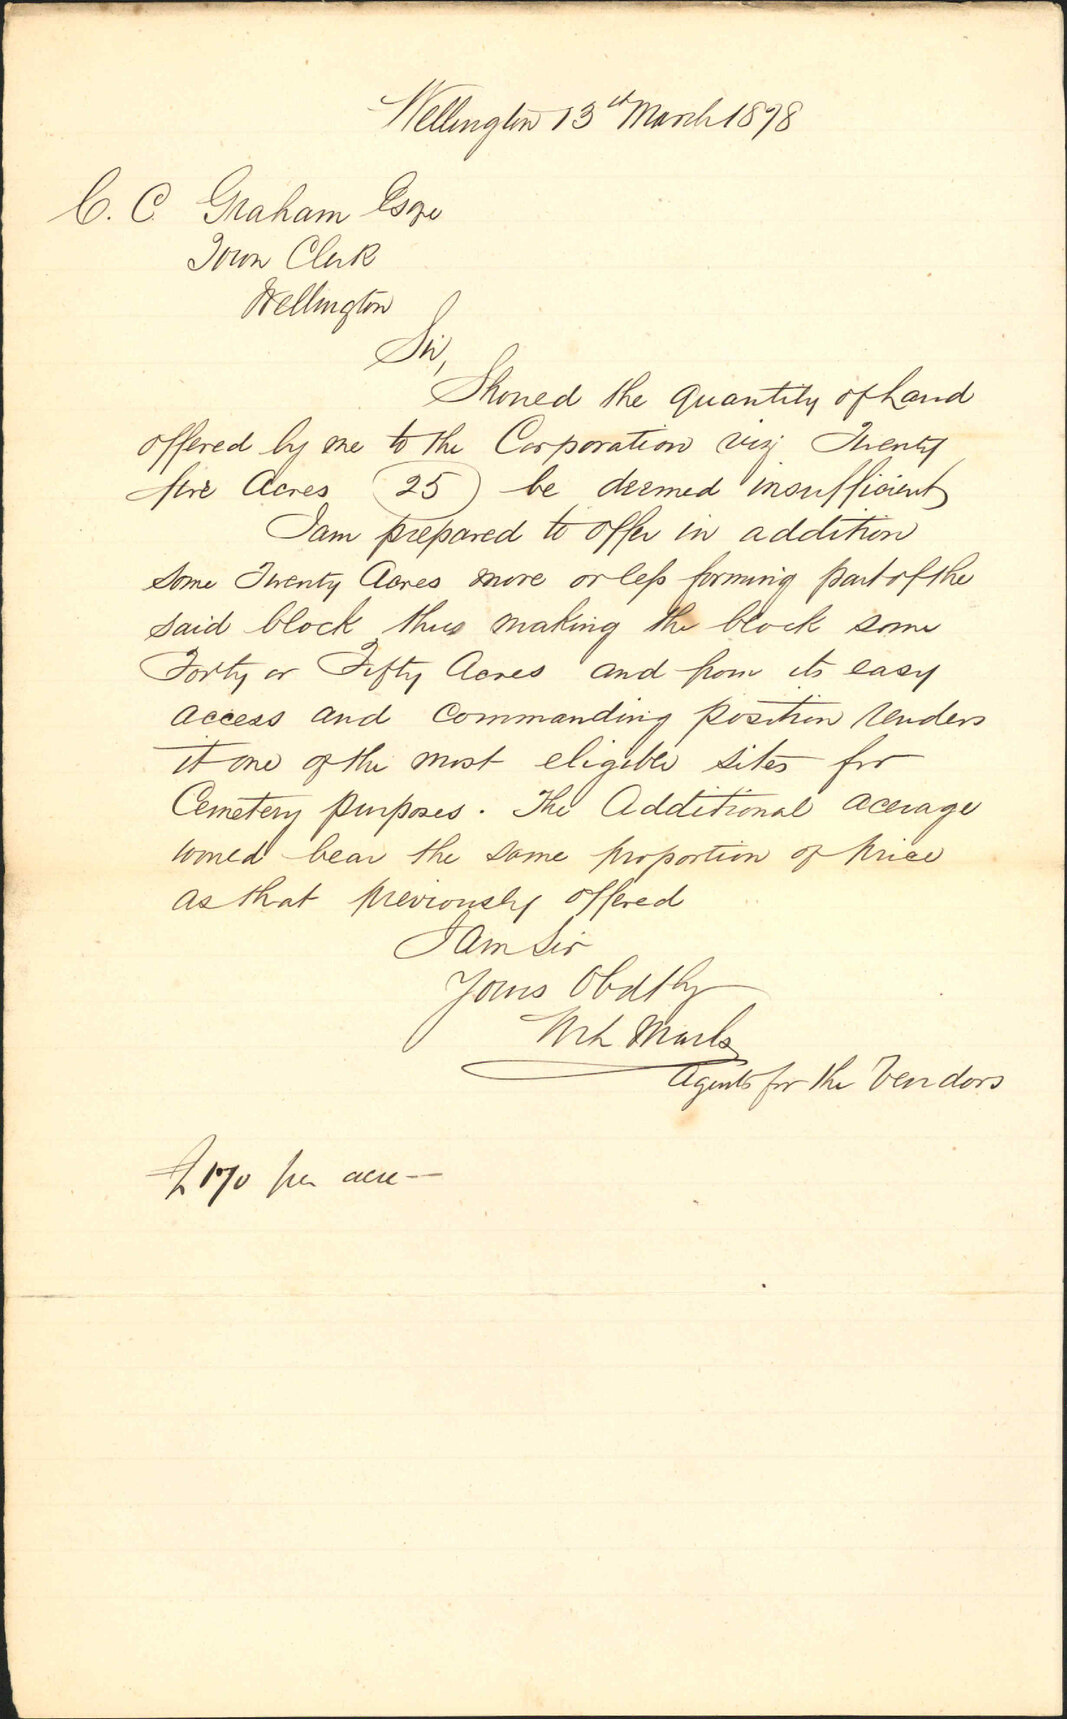 Wellington 13th March 1878
C. C. Graham Esqre
Town Clerk
Wellington
Sir,
Should the quantity of Land
offered by me to the Corporation viz Twenty
five Acres (25) be deemed insufficient
I am prepared to offer in addition
some Twenty Acres more or less forming part of the
said block thus making the block some
Forty or Fifty Acres and from its easy
access and commanding position renders
it one of the most eligible sites for
Cemetery purposes. The Additional acerage
would bear the same proportion of price
as that previously offered
I Am Sir
Yours Obdtly
Marks
Agents for the Vendors
£170 per acre —